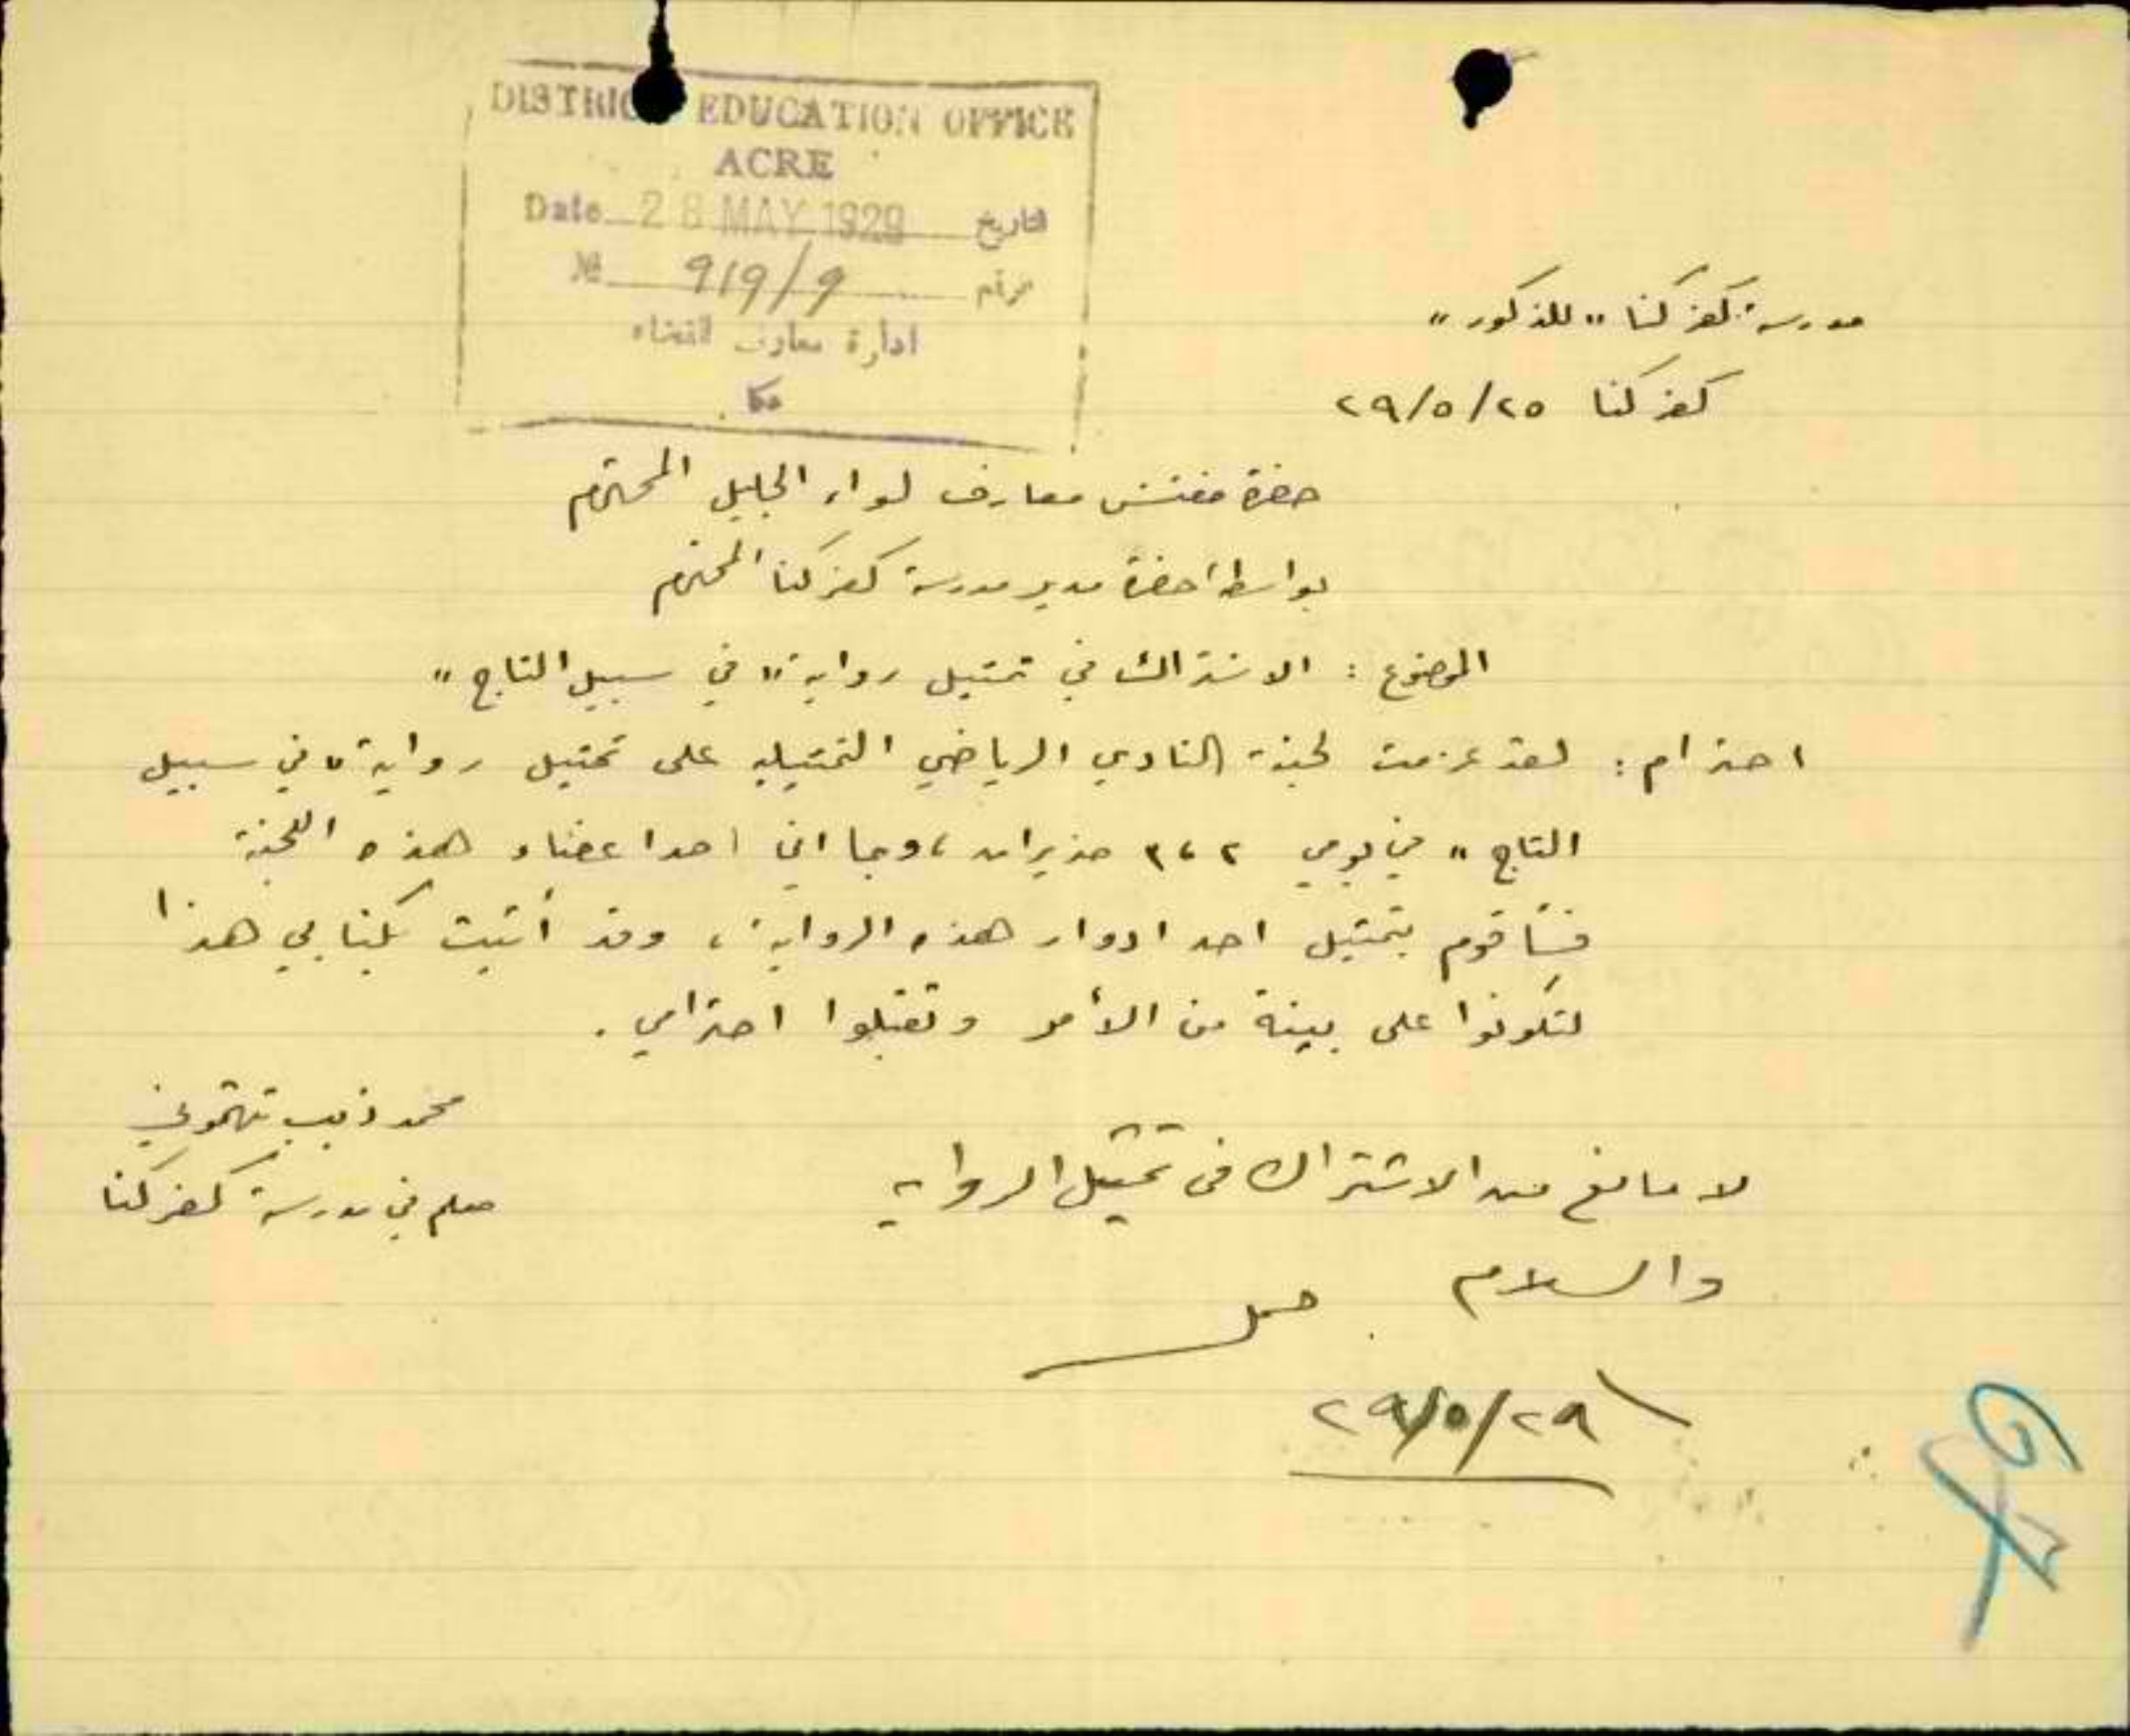 DISTRICT EDUCATION OFFICE
ACRE
Date 28 MAY 1929 التاريخ
№ 919/9 الرقم
ادارة معارف القضاء
عكا
مدرسة كفركنا "للذكور"
كفركنا ٢٩/٥/٢٥
حضرة مفتش معارف لواء الجليل المحترم
بواسطة حضرة مدير مدرسة كفركنا المحترم
الموضوع : الاشتراك في تمثيل رواية "في سبيل التاج"
احترام : لقد عزمت لجنة النادي الرياضي التمثيليه على تمثيل رواية "في سبيل
التاج" في يومي ٢ ، ٣ حزيران ، وبما اني احد اعضاء هذه اللجنة
فسأقوم بتمثيل احد ادوار هذه الرواية ، وقد أتيت بكتابي هذا
لتكونوا على بينة من الأمر وتقبلوا احترامي .
محمد ذيب
معلم في مدرسة كفركنا
لا مانع من الاشتراك في تمثيل الروايه
والسلام
٢٩/٥/٢٩